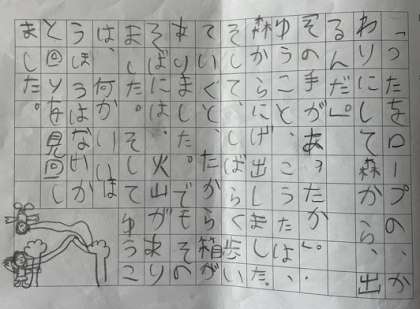 「つったをロープの、か
わりにして森から、出
るんだ」。
「その手が、あったか」。
ゆうこと、こうたは、
森からにげ出しました。
そして、しばらく歩い
ていくと、たから箱が
ありました。でもその
そばには、火山があり
ました。そしてゆうこ
は、何かいい
うほうはないか
と回りを見回し
ました。